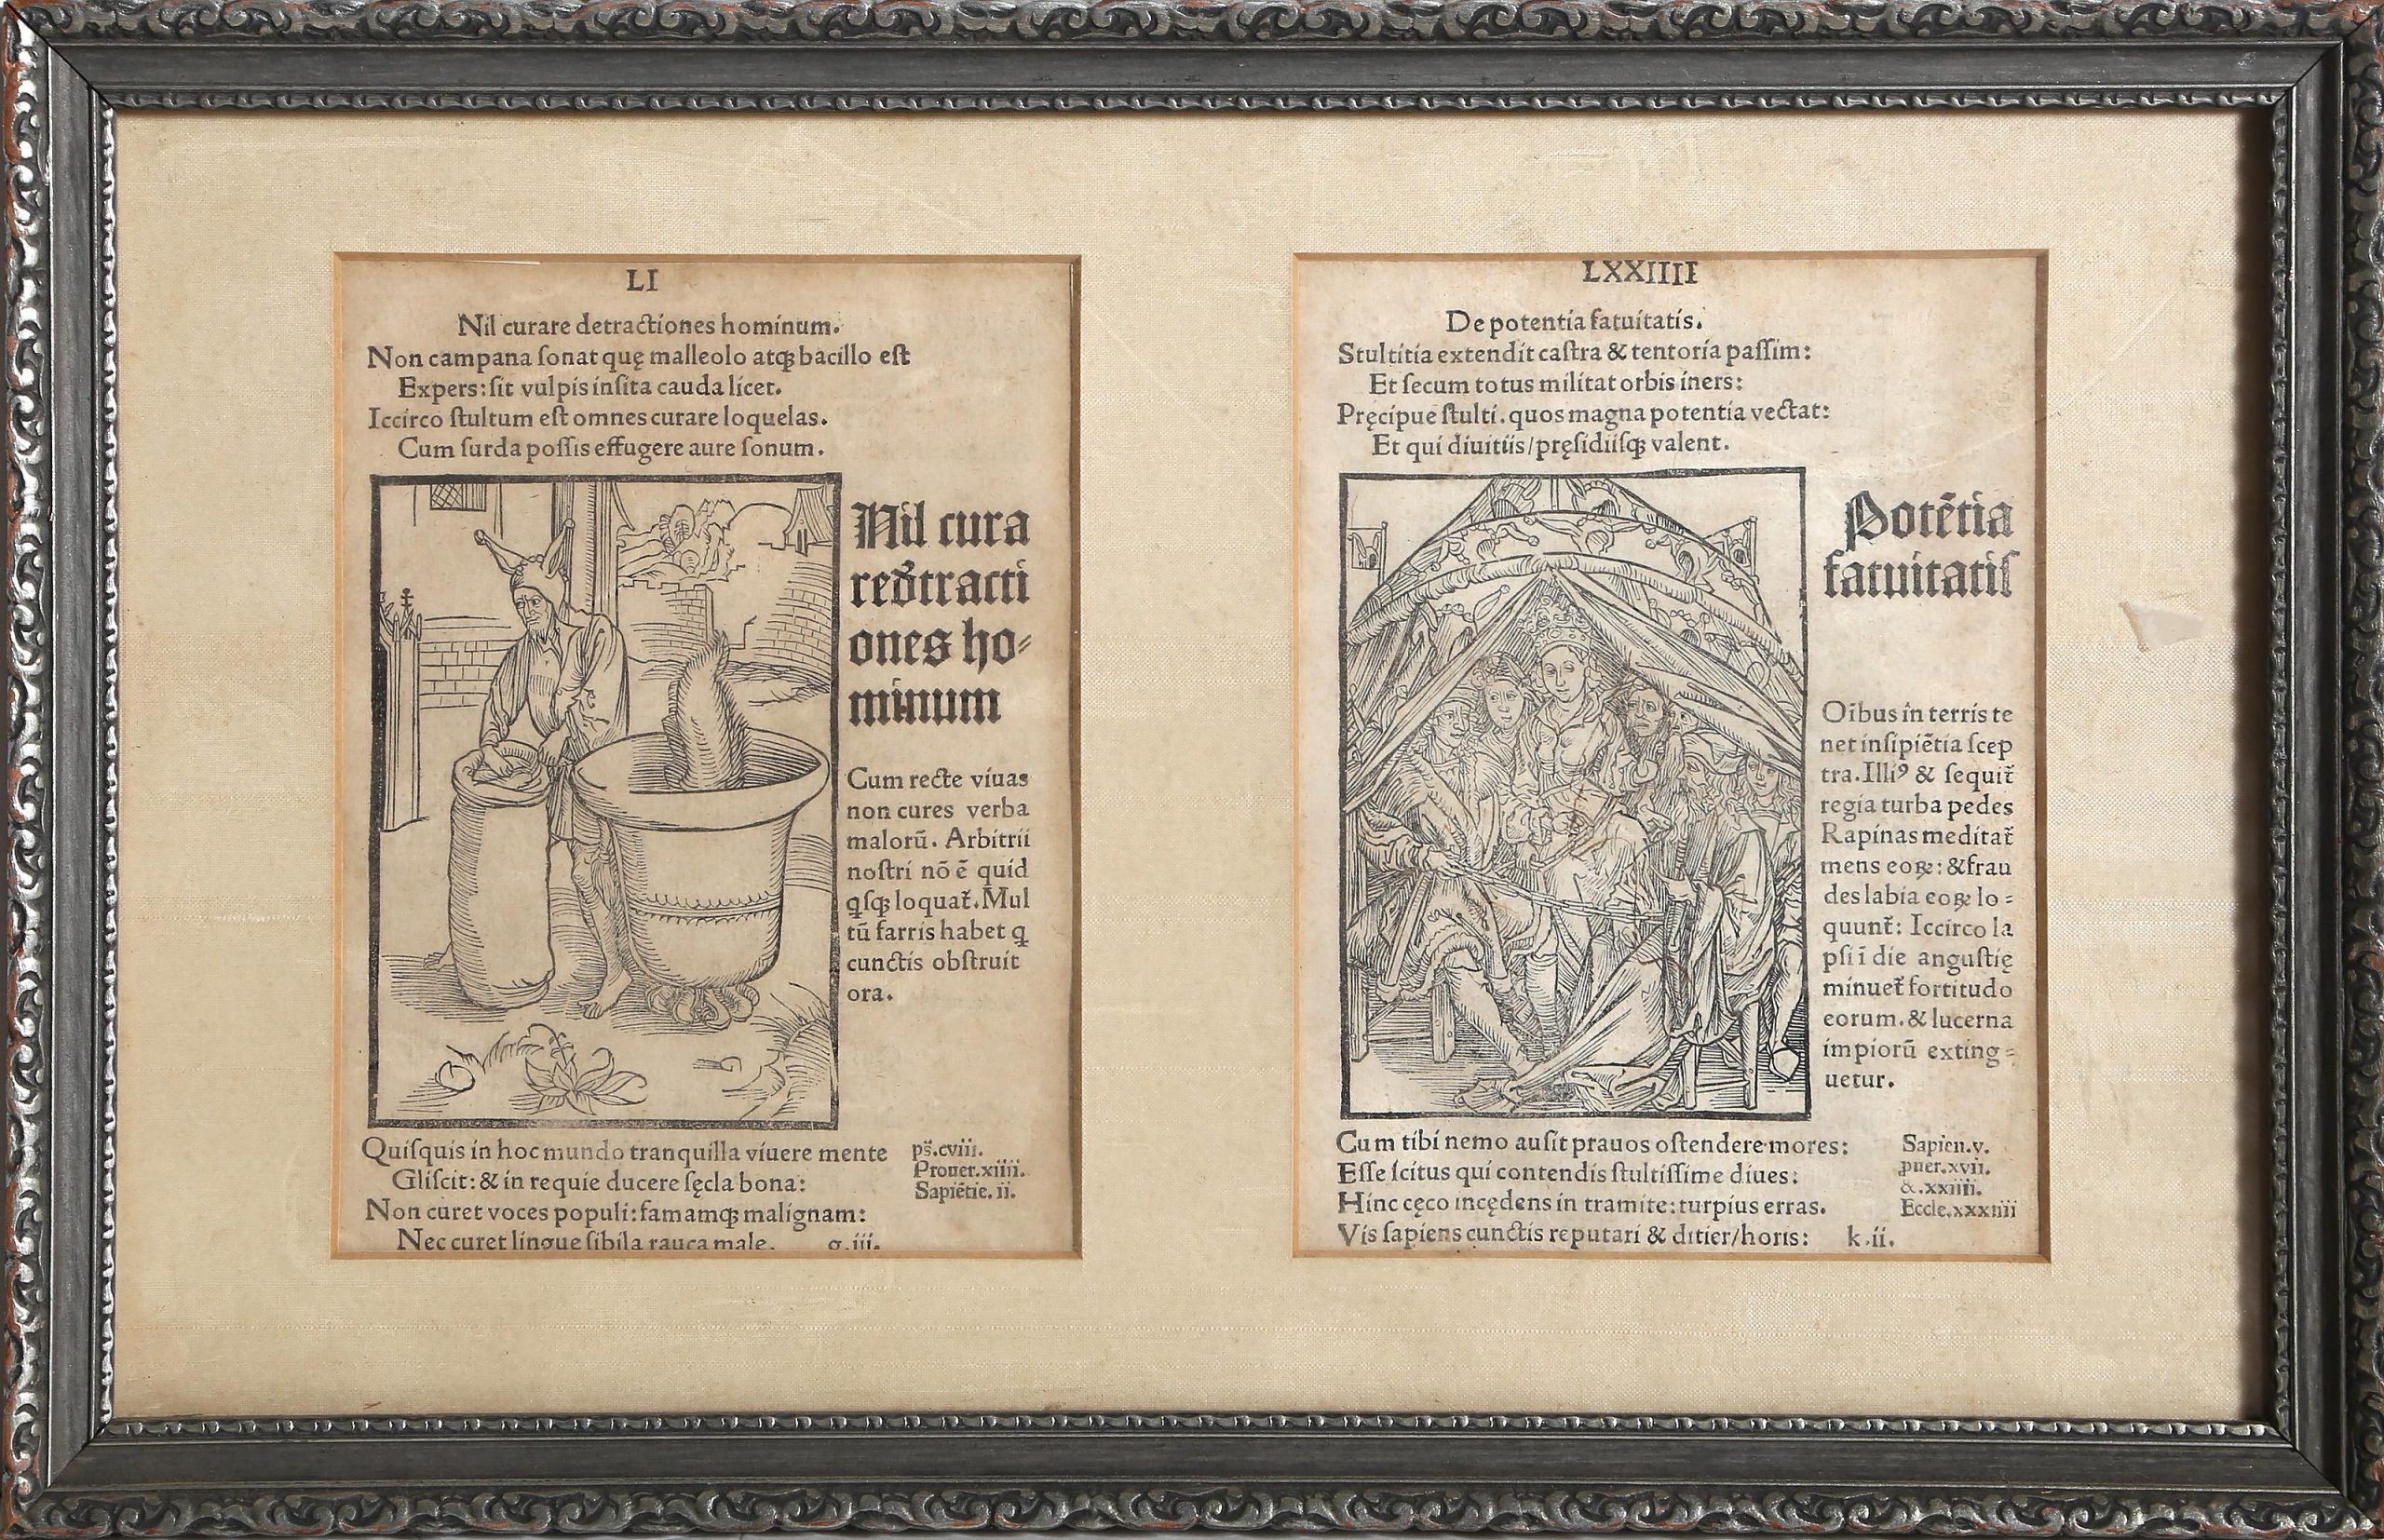 LI
Nil curare detractiones hominum.
Non campana ſonat quę malleolo atqꝫ bacillo eſt
Expers: ſit vulpis inſita cauda licet.
Iccirco ſtultum eſt omnes curare loquelas.
Cum ſurda poſſis effugere aure ſonum.
Nil cura
re dtracti
ones ho⸗
minum
Cum recte viuas
non cures verba
malorū. Arbitrii
noſtri nō ē quid
qſqꝫ loquat̃. Mul
tū farris habet q
cunctis obſtruit
ora.
Quiſquis in hoc mundo tranquilla viuere mente
Gliſcit: & in requie ducere ſęcla bona:
Non curet voces populi: famamqꝫ malignam:
Nec curet lingue ſibila rauca male. g.iii.
ps̃.cviii.
Prouer.xiiii.
Sapiētie. ii.
LXXIIII
De potentia fatuitatis.
Stultitia extendit caſtra & tentoria paſſim:
Et ſecum totus militat orbis iners:
Pręcipue ſtulti. quos magna potentia vectat:
Et qui diuitiis/pręſidiiſqꝫ valent.
Potētia
fatuitatiſ
Oībus in terris te
net inſipiētia ſcep
tra. Illiꝰ & ſequit̃
regia turba pedes
Rapinas meditat̃
mens eoꝝ: & frau
des labia eoꝝ lo⸗
quunt̃: Iccirco la
pſi ī die anguſtię
minuet̃ fortitudo
eorum. & lucerna
impiorū exting⸗
uetur.
Cum tibi nemo auſit prauos oſtendere mores:
Eſſe ſcitus qui contendis ſtultiſſime diues:
Hinc cęco incędens in tramite: turpius erras.
Vis ſapiens cunctis reputari & ditier/horis: k.ii.
Sapien.v.
ꝓuer.xvii.
&.xxiiii.
Eccle.xxxiiii